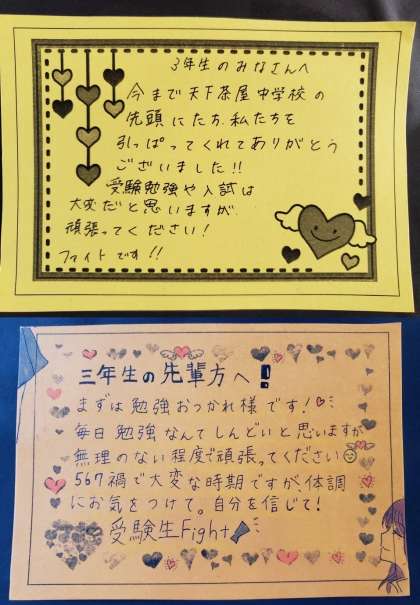 3年生のみなさんへ
今まで天下茶屋中学校の
先頭にたち私たちを
引っぱってくれてありがとう
ございました!!
受験勉強や入試は
大変だと思いますが
頑張ってください!
ファイトです!!
三年生の先輩方へ!
まずは勉強おつかれ様です!
毎日勉強なんてしんどいと思いますが
無理のない程度で頑張ってください
567禍で大変な時期ですが、体調
にお気をつけて。自分を信じて!
受験生Fight